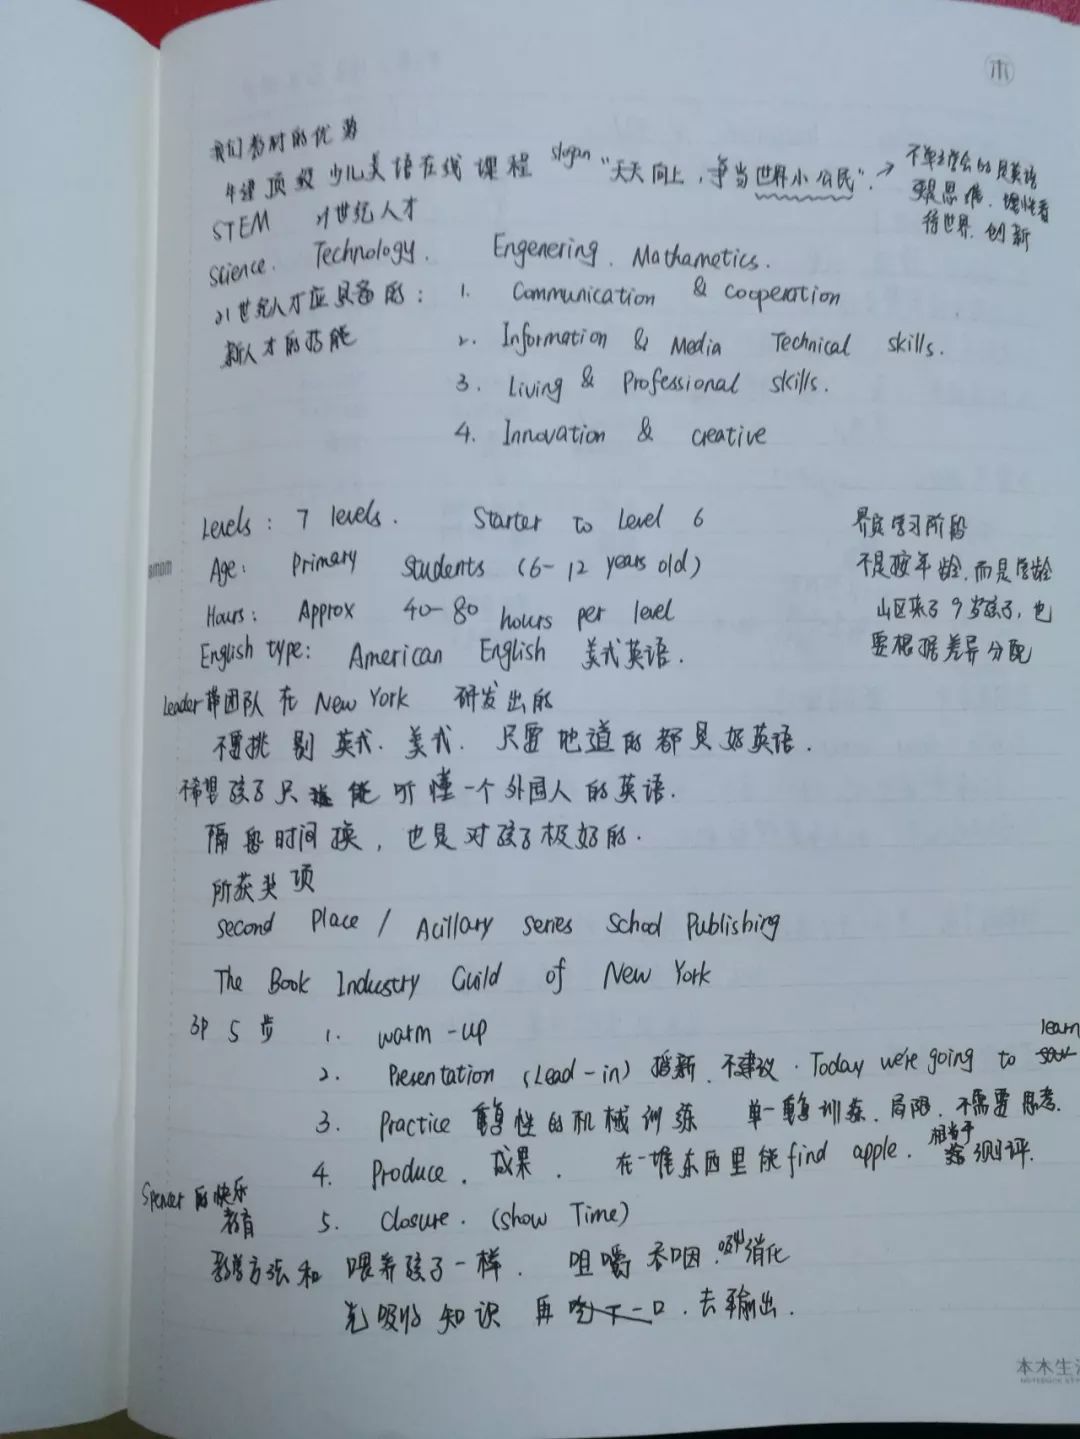 木
我们教材的优势
顶级少儿美语在线课程 slogan "天天向上，争当世界小公民". → 不单学会的是英语
思维、理性看
待世界、创新
STEM 21世纪人才
Science. Technology. Engenering. Mathametics.
21世纪人才应具备的： 1. Communication & cooperation
新人才的技能 2. Information & Media Technical skills.
3. Living & Professional skills.
4. Innovation & creative
Levels: 7 levels. Starter to Level 6 学习阶段
Age: Primary students (6-12 years old) 不是按年龄，而是学龄
Hours: Approx 40-80 hours per level 山区来了9岁孩子，也
English type: American English 美式英语. 要根据差异分配
Leader带团队在New York 研发出的
不要挑剔英式、美式. 只要地道的都是好英语.
不希望孩子只能听懂一个外国人的英语.
隔段时间换，也是对孩子极好的.
所获奖项
second Place / Acillary series School Publishing
The Book Industry Guild of New York
3P 5步 1. warm-up
learn
2. Presentation (Lead-in) 授新、不建议. Today we're going to
3. Practice 重复性的机械训练 单一重复训练、局限、不需要思考.
4. Produce. 成果. 在一堆东西里能find apple. 相当于测评.
Spencer的快乐
教育 5. Closure. (show Time)
教学方法和喂养孩子一样. 咀嚼 吞咽 吸收消化
先吸收知识 再 去输出.
本木生活